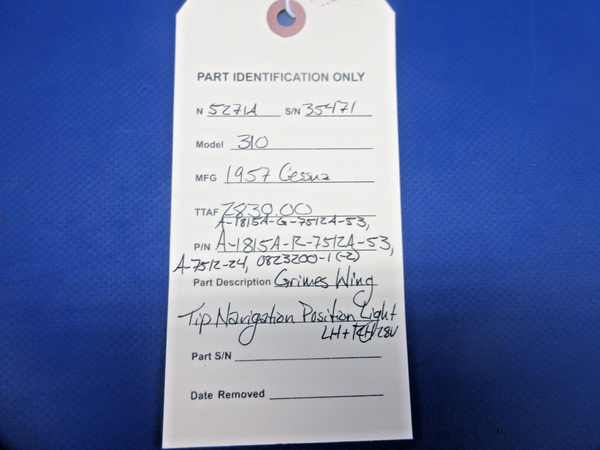 PART IDENTIFICATION ONLY
N 5271A S/N 35471
Model 310
MFG 1957 Cessna
TTAF 2830.00
A-1815A-G-7512A-53,
P/N A-1815A-R-7512A-53,
A-7512-24, 0823200-1(-2)
Part Description Grimes Wing
Tip Navigation Position Light
LH + RH 28V
Part S/N
Date Removed